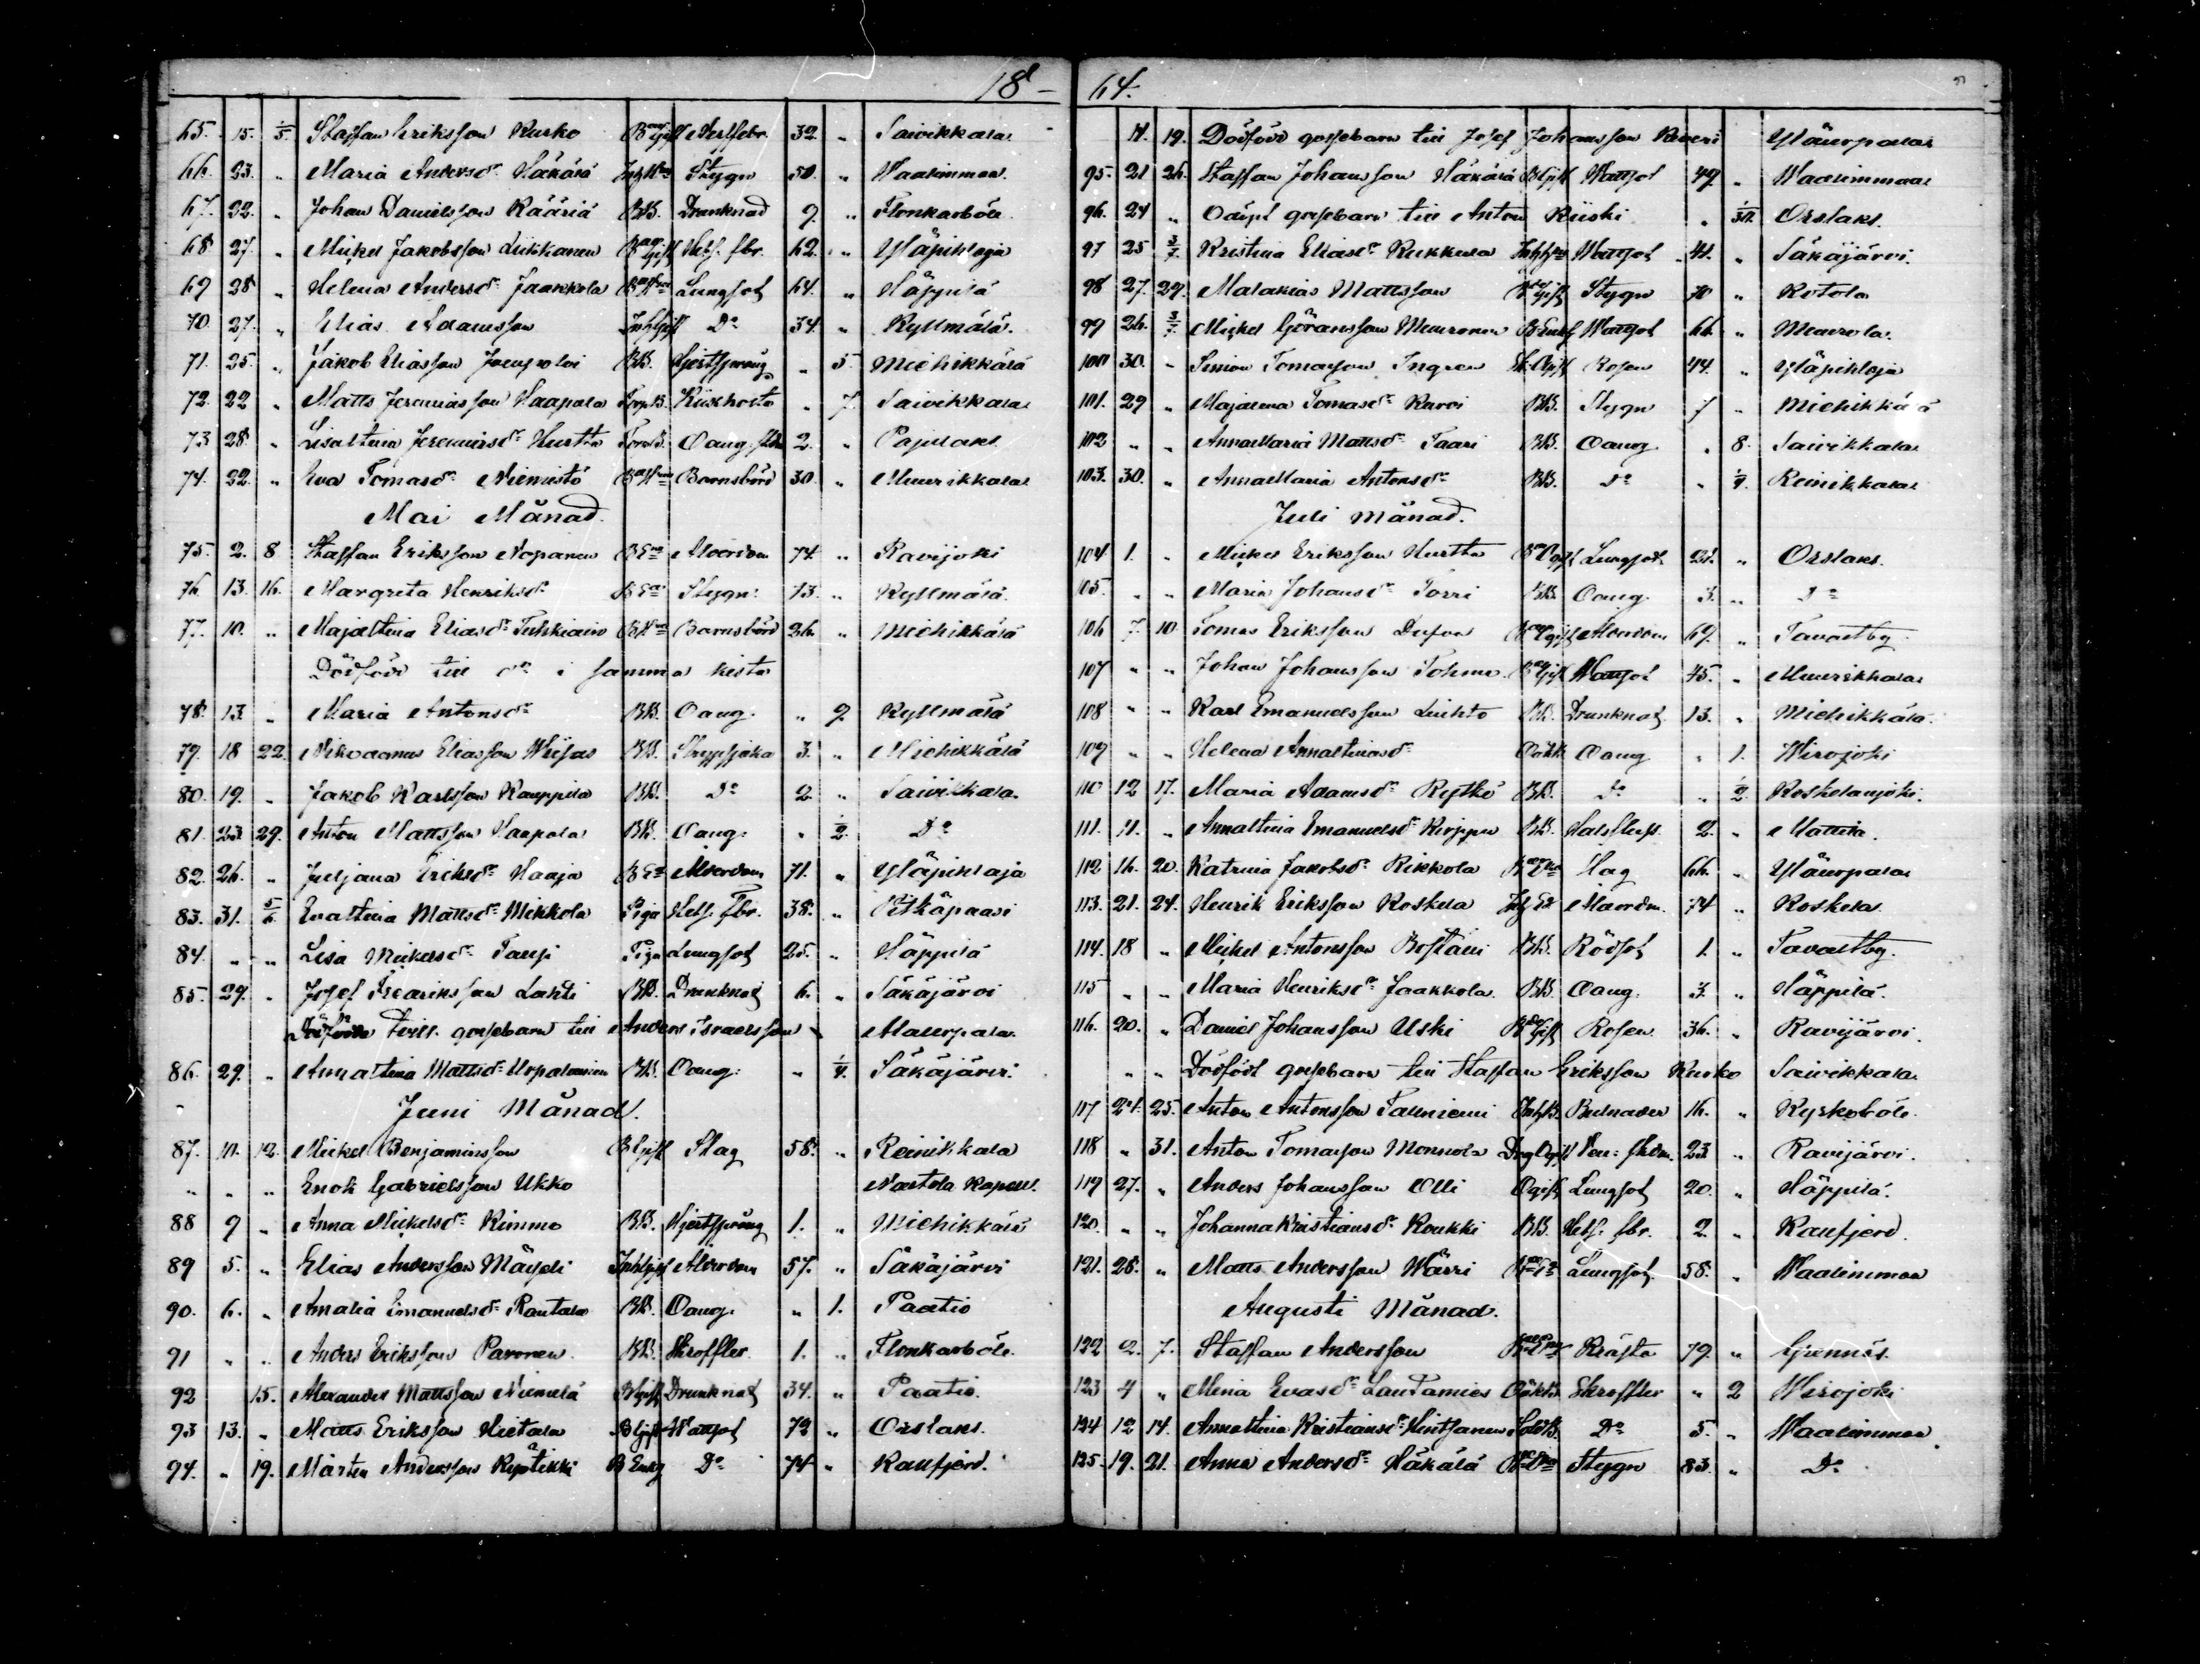 18 – 64.
65. 15. 1/5. Staffan Eriksson Kurko Bgift Nerffebr. 32. „ Saivikkala
66. 23. „ Maria Andersdr Häkälä Stygn 50. „ Waalimmaa
67. 22. „ Johan Danielsson Kääriä BB. Drunknad 9. „ Flonkarböle
68 27. „ Mickel Jakobsson Liikkanen Bgift Nerf. fbr. 62. „ Yläpihlaja
69 28 „ Helena Andersdr Jaakkola Lungsot 64. „ Häppilä
70. 27. „ Elias Adamsson Inhgift Do 34. „ Kyllmälä.
71. 25. „ Jakob Eliasson BB. Hjertsprång „ 5 Miehikkälä
72. 22 „ Matts Jeremiasson Haapala Kikhosta „ 7. Saivikkala
73 28. „ Jeremiasdr Hurtta Oang. 2. „ Pajulaks
74. 22. „ Eva Tomasdr Niemistö Barnsbörd 30. „ Muurikkala
Mai Månad.
75. 2. 8 Staffan Eriksson Nopanen Ålderdom 74. „ Ravijoki
76. 13. 16. Margreta Henriksdr Stygn 73. „ Kyllmälä
77. 10. „ Majastina Eliasdr Barnsbörd 36. „ Miehikkälä
Dödfödd till do i samma kista
78. 13. „ Maria Antonsdr BB. Oang. „ 9. Kyllmälä
79. 18 22. Nikodemus Eliasson BB. Strypsjuka 3. „ Miehikkälä
80. 19. „ Jakob Karlsson Kauppila BB. Do 2. „ Saivikkala.
81. 23 29. Anton Mattsson Haapala BB. Oang. „ 1/2. Do
82. 26. „ Juljana Eriksdr Haaja Ålderdom 71. „ Yläpihlaja
83. 31. 5/6. Evastina Mattsdr Mikkola Piga Nerf. fbr. 38. „ Pitkäpaasi
84. „ „ Lisa Mickelsdr Piga Lungsot 25. „ Häppilä
85. 29. „ Josef Fredriksson Lahti BB. Drunknad 6. „ Säkäjärvi
Dödfödde Tvill. gossebarn till Anders Israelsson Alaurpala.
86. 29. „ Annastina Mattsdr Urpalainen BB. Oang. „ 1/4. Säkäjärvi.
Juni Månad.
87. 10. 12. Mickel Benjaminsson Bgift Slag 58. „ Reinikkala
„ „ „ Enok Gabrielsson Ukko Nastola Kapell.
88 9 „ Anna Mickelsdr Kimmo BB. Hjertsprång 1. „ Miehikkälä
89 5. „ Elias Andersson Inhgift Ålderdom 57. „ Säkäjärvi
90. 6. „ Amalia Emanuelsdr Rantala BB. Oang. „ 1. Paatio
91 „ „ Anders Eriksson Paronen BB. Skroffler 1. „ Flonkarböle.
92 15. Alexander Mattsson Niemelä Bgift Drunknad 34. „ Paatio.
93 13. „ Matts Eriksson Hietala Bgift Wattsot 72 „ Orslaks.
94. „ 19. Mårten Andersson B Enkg Do 74. „ Kaufjerd.
11. 19. Dödfödd gossebarn till Josef Johansson Yläurpala
95. 21 26. Staffan Johansson Häkälä Bgift Wattsot 49. „ Waalimmaa
96. 24 „ Odöpt gossebarn till Anton Kiiski „ 1/30. Orslaks.
97 25 3/7. Kristina Eliasdr Wattsot 41. „ Säkäjärvi.
98 27. 29. Malakias Mattsson Stygn 70 „ Kotola
99 26. 3/7. Mickel Göransson Muuronen B Enkg Wattsot 66. „ Muurola.
100 30. „ Simon Tomasson Ingren Rosen 44. „ Yläpihlaja
101. 29 „ Majalena Tomasdr Karvi BB. Stygn 7 „ Miehikkälä
102 „ „ Annamaria Mattsdr Taari BB. Oang. „ 8. Saivikkala
103. 30. „ Annamaria Antonsdr BB. Do „ 1/4. Reinikkala
Juli Månad.
104 1. „ Mickel Eriksson Hurtta Lungsot 21. „ Orslaks.
105. „ „ Maria Johansdr Torri BB. Oang. 3. „ Do
106 7. 10 Tomas Eriksson Dufva Ålderdom 69. „ Tavastby.
107 „ „ Johan Johansson Tohmo Wattsot 45. „ Muurikkala
108 „ „ Karl Emanuelsson BB. Drunknad 13. „ Miehikkälä.
109 „ „ Helena Annastinasdr Oäkta Oang „ 1. Wirojoki
110 12 17. Maria Adamsdr Rytkö BB. Do „ 1/2. Koskelanjoki.
111. 11. „ Annastina Emanuelsdr BB. 2. „ Mattila.
112 16. 20. Katrina Jakobsdr Rikkola Slag 66. „ Yläurpala
113. 21. 24. Henrik Eriksson Koskela Ålderdm. 74 „ Koskela.
114. 18 „ Mickel Antonsson BB. Rödsot 1. „ Tavastby.
115 „ „ Maria Henriksdr Jaakkola. BB. Oang. 3. „ Häppilä.
116. 20. „ Daniel Johansson Uski Rosen 36. „ Ravijärvi.
„ „ Dödfödt gossebarn till Staffan Eriksson Kurko Saivikkala
117 24. 25. Anton Antonsson Tallniemi Bulnader 16. „ Kyrkoböle.
118 „ 31. Anton Tomasson Monnola 23 „ Ravijärvi.
119 27. „ Anders Johansson Olli Ogift Lungsot 20. „ Häppilä.
120. „ „ Johanna Kristiansdr Koukki BB. Nerf. fbr. 2. „ Kaufjerd.
121. 28. „ Matts Andersson Wärri Lungsot. 58. „ Waalimmaa
Augusti Månad.
122 2. 7. Staffan Andersson Kräfta 79. „ Grennäs.
123 4 „ Mina Evasdr Lautamies Skroffler „ 2 Wirojoki
124 12 14. Annastina Kristiansdr Do 5. „ Waalimmaa
125. 19. 21. Anna Andersdr Häkälä Stygn 83. „ Do